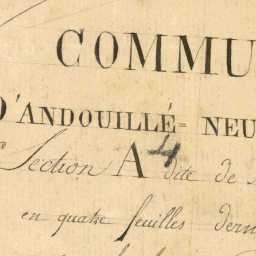 COMMU
D'ANDOUILLÉ=NEU
Section A 4 dite de
en quatre feuilles dern